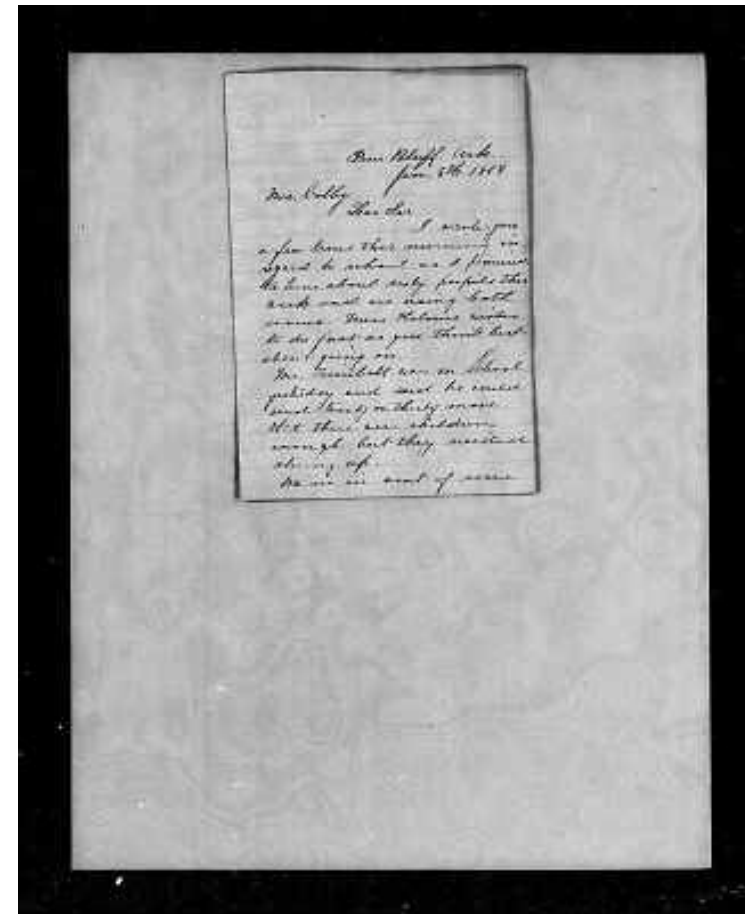 Pine Bluff Ark
Jan 8th 1868
Mr. Colby
Dear Sir
I wrote you
a few lines this morning in
regard to school as I
We have about sixty pupils this
week and are using both
rooms. Miss wishes
to do just as you think best
about going on
Mr. was in School
and said he could
send twenty or thirty more
that there are children
enough but they
strung up
We are in need of some